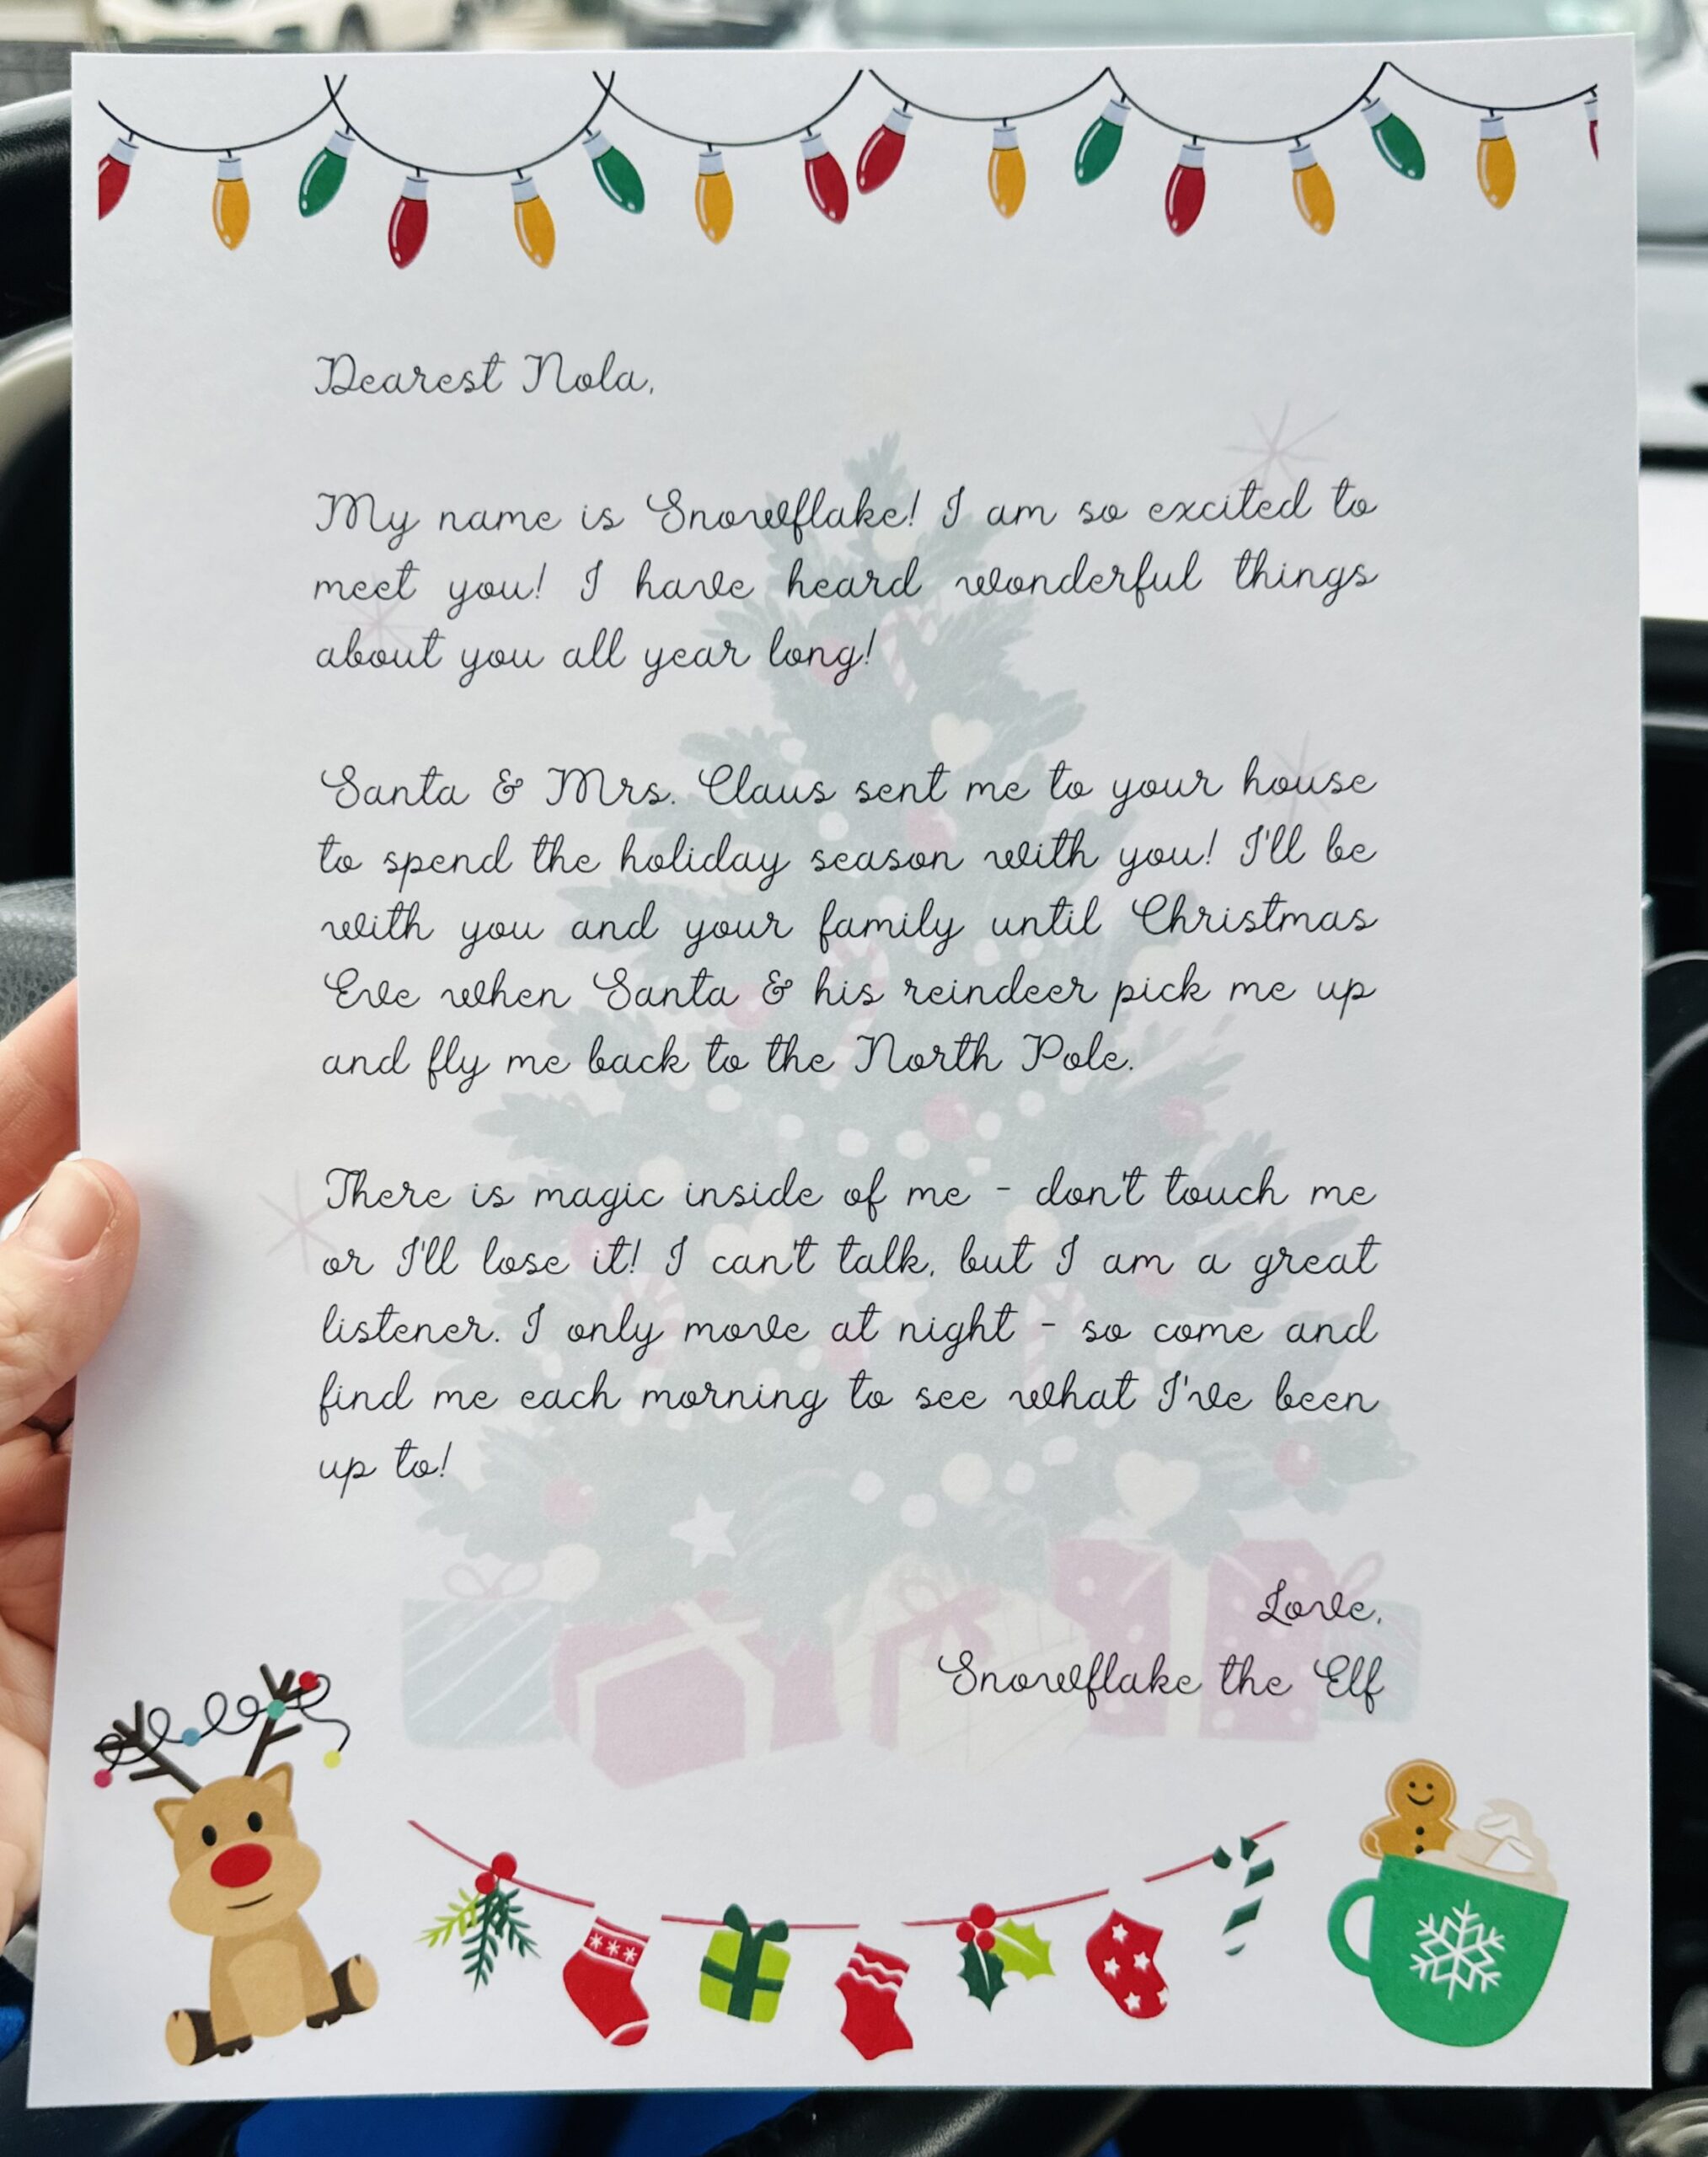 Dearest Nola,
My name is Snowflake! I am so excited to
meet you! I have heard wonderful things
about you all year long!
Santa & Mrs. Claus sent me to your house
to spend the holiday season with you! I'll be
with you and your family until Christmas
Eve when Santa & his reindeer pick me up
and fly me back to the North Pole.
There is magic inside of me - don't touch me
or I'll lose it! I can't talk, but I am a great
listener. I only move at night - so come and
find me each morning to see what I've been
up to!
Love,
Snowflake the Elf